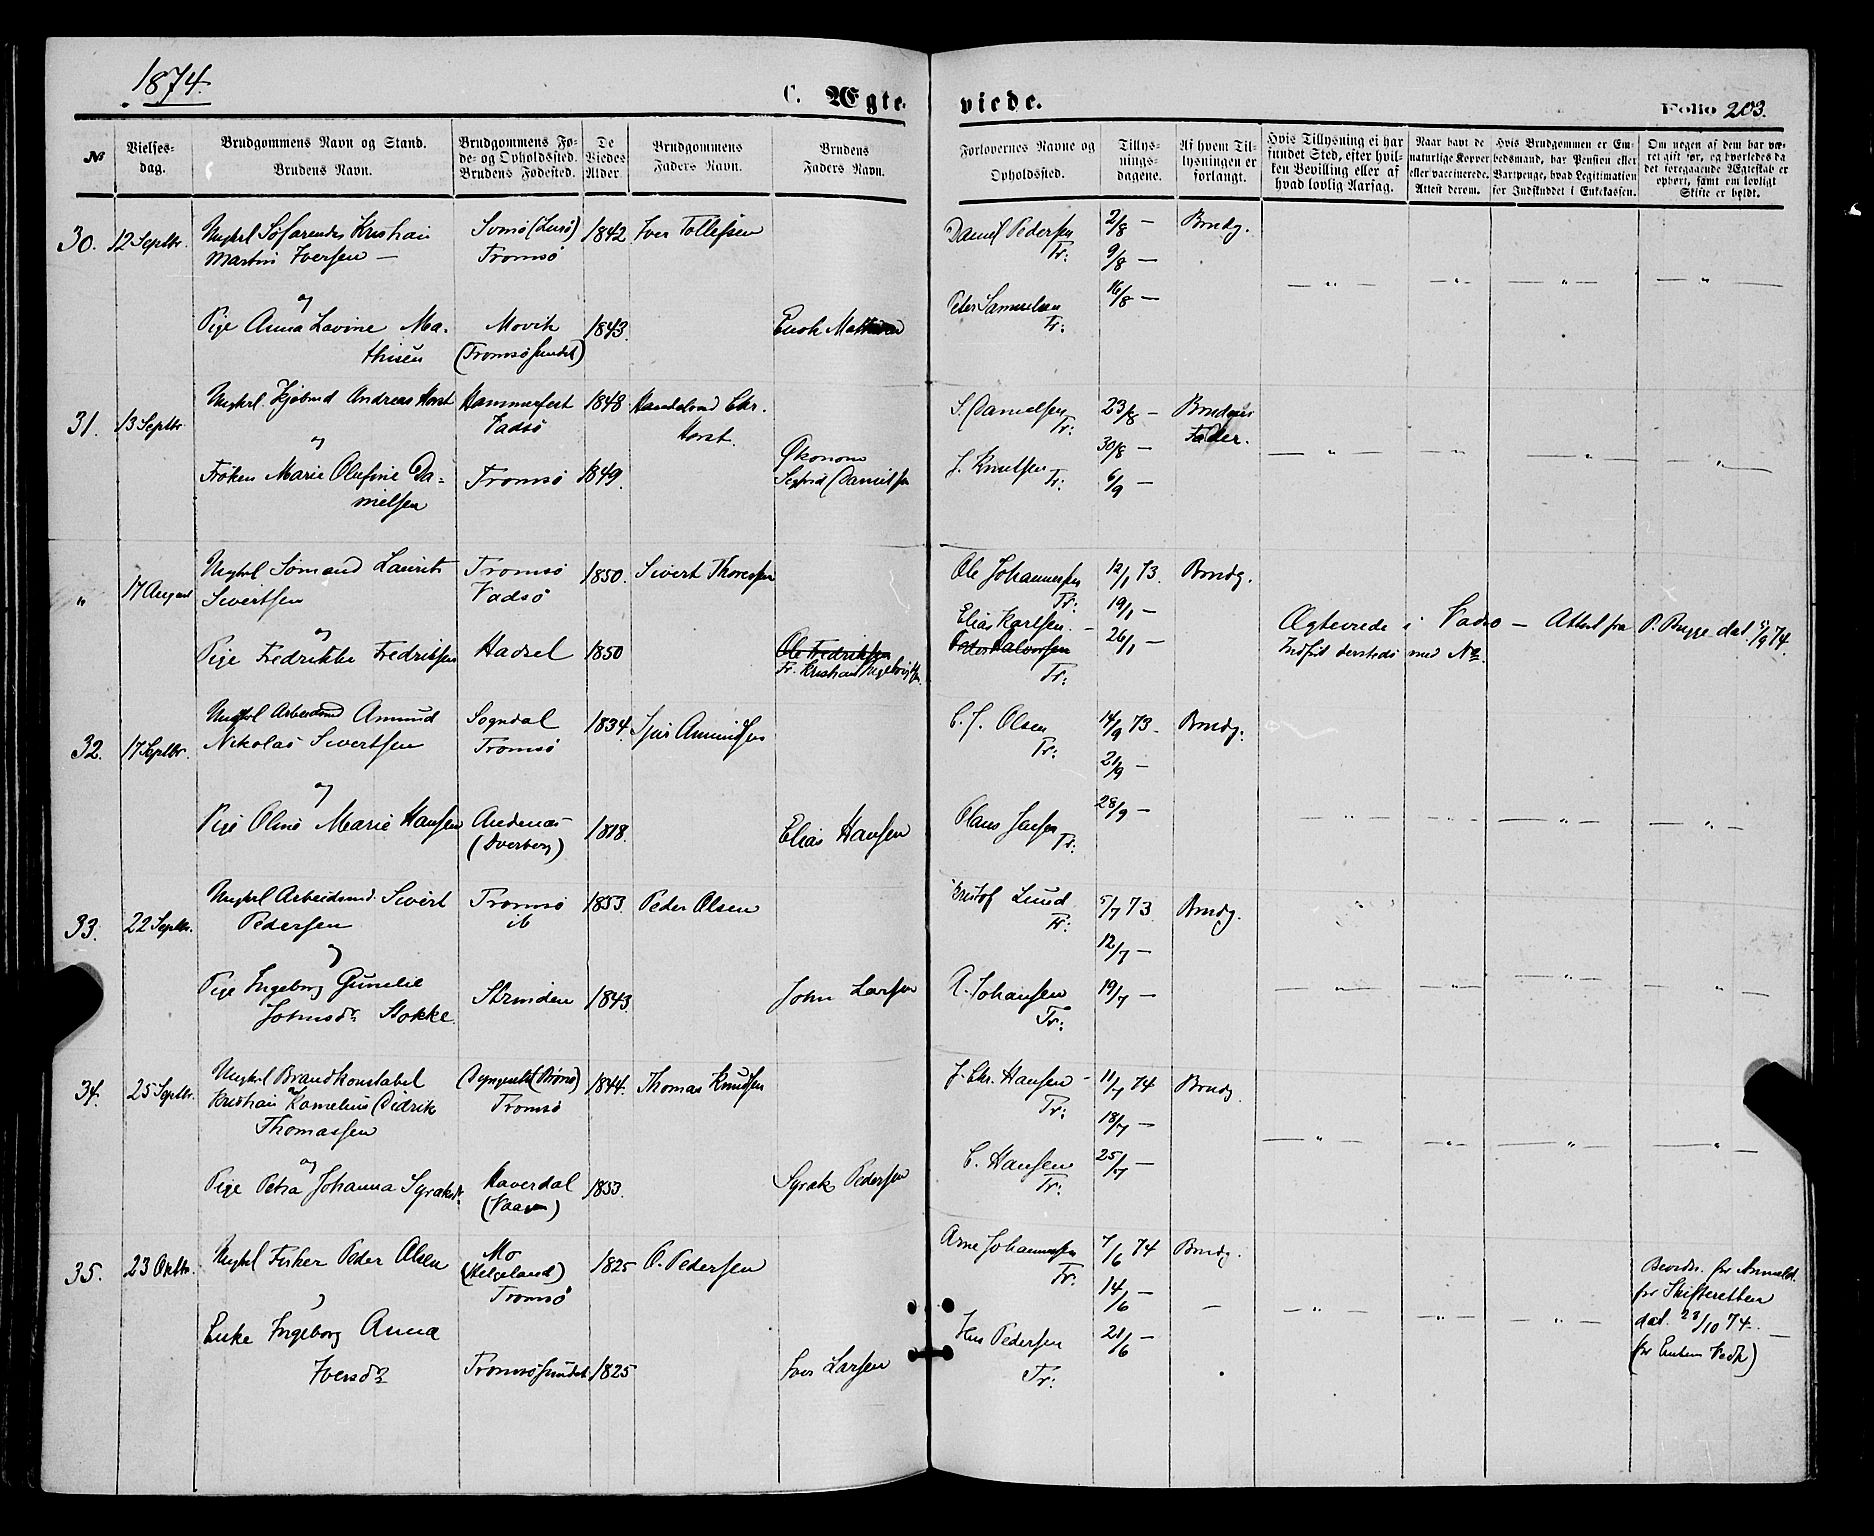 1874.
C. Ægte-
viede.
Folio 203.
№
Vielses-
dag.
Brudgommens Navn og Stand.
Brudens Navn.
Brudgommens Fø-
de- og Opholdssted.
Brudens Fødested.
De
Viedes
Alder.
Brudgommens
Faders Navn.
Brudens
Faders Navn.
Forlovernes Navne og
Opholdssted.
Tillys-
nings-
dagene.
Af hvem Til-
lysningen er
forlangt.
Hvis Tillysning ei har
fundet Sted, efter hvil-
ken Bevilling eller af
hvad lovlig Aarsag.
Naar havt de
naturlige Kopper
eller vaccinerede.
Attest derom.
Hvis Brudgommen er Em-
bedsmand, har Pension eller
Vartpenge, hvad Legitimation
for Indskuddet i Enkekassen.
Om nogen af dem har væ-
ret gift før, og hvorledes da
det foregaaende Ægteskab er
ophørt, samt om lovligt
Skifte er holdt.
30. 12 Septbr. Ungkrl Søfarendes Kristian
Martin Iversen —
og
Pige Anna Lavine Ma-
thisen
Tromsø
Movik
(Tromsøsundet)
1842
1843.
Iver Tollefsen
Enok Mathisen
Daniel Pedersen
Tr:
Peter Samuelsen
Tr:
2/8 —
9/8 —
16/8 —
Brudg.
31. 13 Septbr. Ungkrl. Kjøbmd Andreas Horst
og
Frøken Marie Olufine Da-
nielsen
Hammerfest
Vadsø
Tromsø
1848
1849.
Handelsmd Chr.
Horst.
Økonom
Sigfrid Danielsen
S. Danielsen
Tr:
J. Knutsen
Tr:
23/8 —
30/8 —
6/9 —
Brudens
Fader.
" 17 August Ungkrl Sømand Laurits
Sivertsen
og
Pige Fredrikke Fredriksen
Tromsø
Vadsø
Hadsel
1850.
1850
Sivert Thoresen
Ole Fredriksen
Fr. Kristian Ingebrigtsen
Ole Johannessen
Tr:
Elias Karlsen.
Peder Halvorsen
Tr:
12/1 73.
19/1 —
26/1 —
Brudg.
Ægteviede i Vadsø — Attest fra P. Bugge dat 74.
Indført dersteds med No
32. 17 Septbr. Ungkrl Arbeidsmd Amund
Nikolas Sivertsen
og
Pige Oline Marie Hansen
Sogndal
Tromsø
Andenæs
(Dverberg)
1834.
1818.
Amundsen
Elias Hansen
C. J. Olsen
Tr:
Olaus Jensen
Tr:
14/9 73.
21/9 —
28/9 —
Brudg.
33. 22 Septbr. Ungkrl Arbeidsmd. Sivert
Pedersen
og
Pige Ingeborg Gunelie
Johnsdr Stokke.
Tromsø
ib
Strinden
1853.
1843
Peder Olsen
John Larsen
Kristof Lund
Tr:
A. Johansen
Tr:
5/7 73.
12/7 —
19/7 —
Brudg.
34. 25 Septbr. Ungkrl Brandkonstabel
Kristian Kornelius Didrik
Thomassen
og
Pige Petra Johanna Syraksdr
Tromsø
Haverdal
1844.
1853.
Thomas Knudsen
Syrak Pedersen
J. Chr. Hansen —
Tr:
C. Hansen
Tr:
11/7 74
18/7 —
25/7 —
Brudg.
35. 23 Oktbr. Ungkrl Fisker Peder Olsen
og
Enke Ingeborg Anna
Iversdr
Mo
(Helgeland)
Tromsø
Tromsøsundet
1825
1825
O. Pedersen
Iver Larsen
Arne Johannessen
Tr:
Pedersen
Tr:
7/6 74
14/6 —
21/6 —
Brudg.
Bevidn. for Anmeld.
for Skifteretten
dat. 23/10 74. —
(for Enkens Vedk)